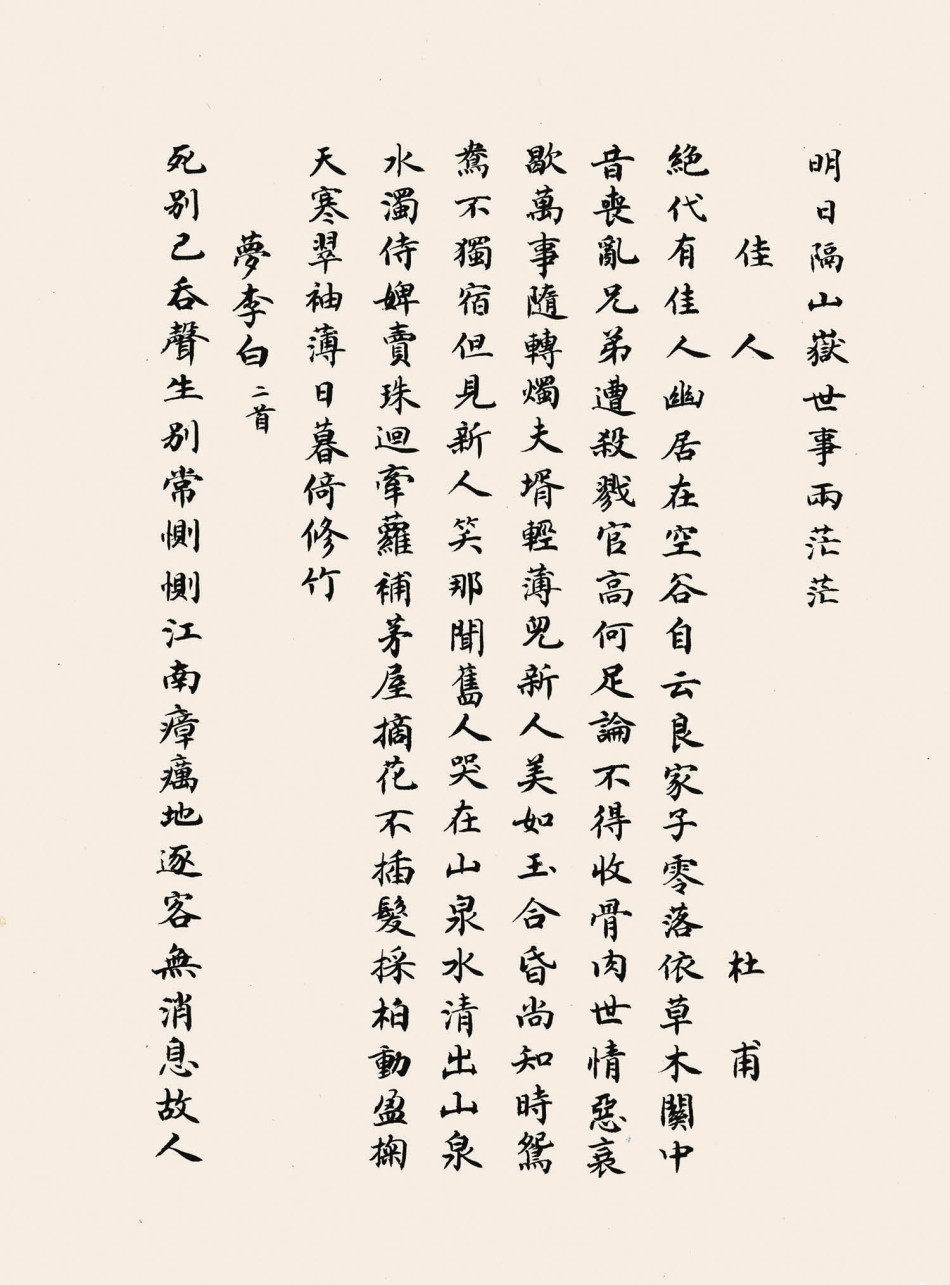 明日隔山嶽世事兩茫茫
佳人 杜甫
絕代有佳人幽居在空谷自云良家子零落依草木關中
昔喪亂兄弟遭殺戮官高何足論不得收骨肉世情惡衰
歇萬事隨轉燭夫壻輕薄兒新人美如玉合昏尚知時鴛
鴦不獨宿但見新人笑那聞舊人哭在山泉水清出山泉
水濁侍婢賣珠迴牽蘿補茅屋摘花不插髮採柏動盈掬
天寒翠袖薄日暮倚修竹
夢李白二首
死別已吞聲生別常惻惻江南瘴癘地逐客無消息故人